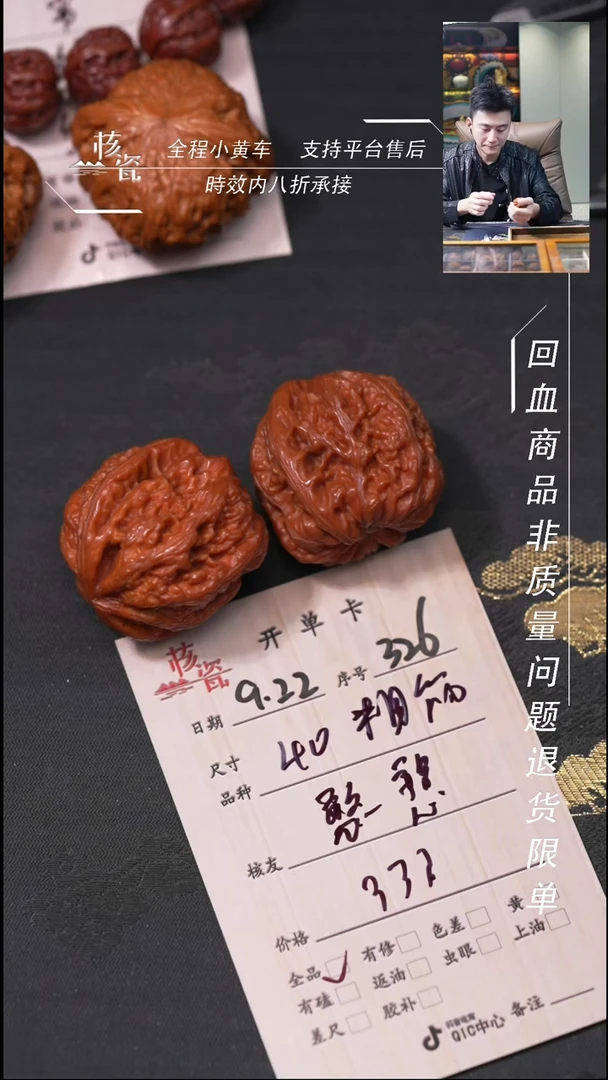 核瓷
全程小黄车 支持平台售后
時效内八折承接
回血商品非质量问题退货限单
核瓷
开单卡
日期 9.22 序号 326
尺寸 40 粗筋
品种
核友
价格 333
全品 有修 色差 黄
有磕 返油 虫眼 上油
差尺 胶补
抖音电商
QIC中心 备注